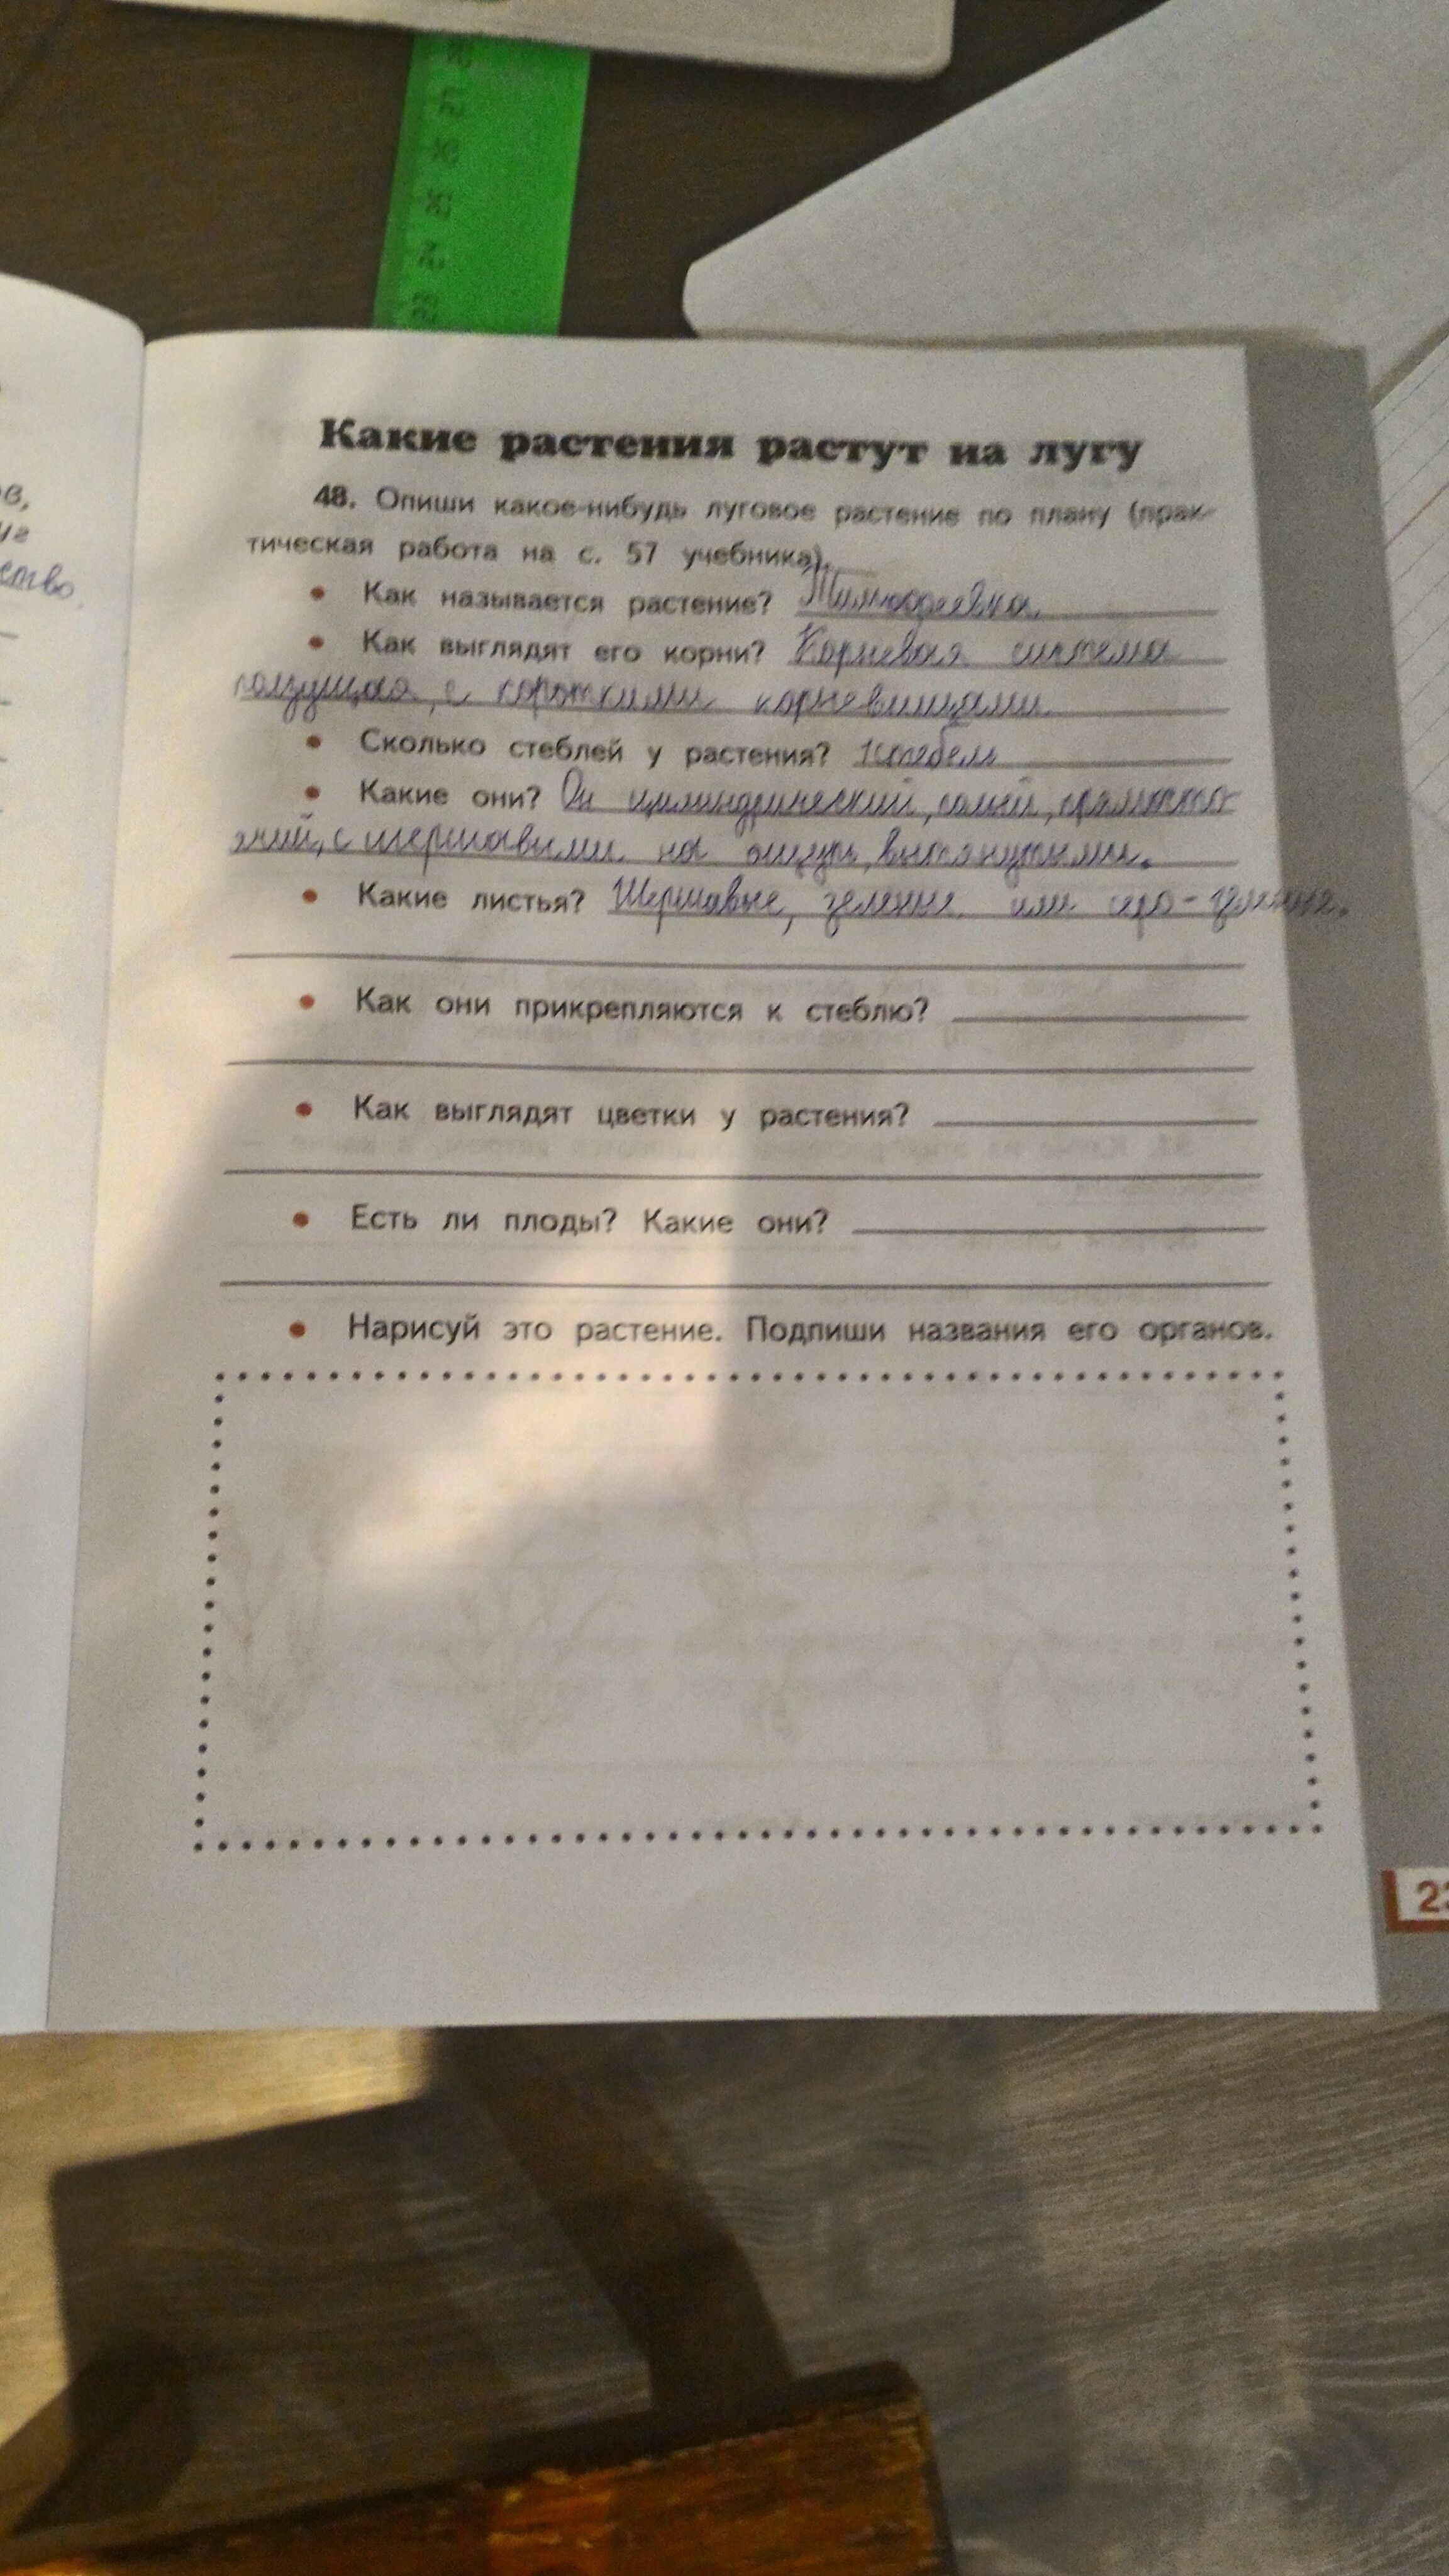 ство.
Какие растения растут на лугу
48. Опиши какое-нибудь луговое растение по плану (прак-
тическая работа на с. 57 учебника).
• Как называется растение? Тимофеевка
• Как выглядят его корни? Корневая система
ползущая, с короткими корневищами
• Сколько стеблей у растения? 1 стебель
• Какие они? Он цилиндрический, прямосто
ячий, с шершавыми на ощупь, вытянутыми.
• Какие листья? Шершавые, зеленые или серо-зеленые.
• Как они прикрепляются к стеблю?
• Как выглядят цветки у растения?
• Есть ли плоды? Какие они?
• Нарисуй это растение. Подпиши названия его органов.